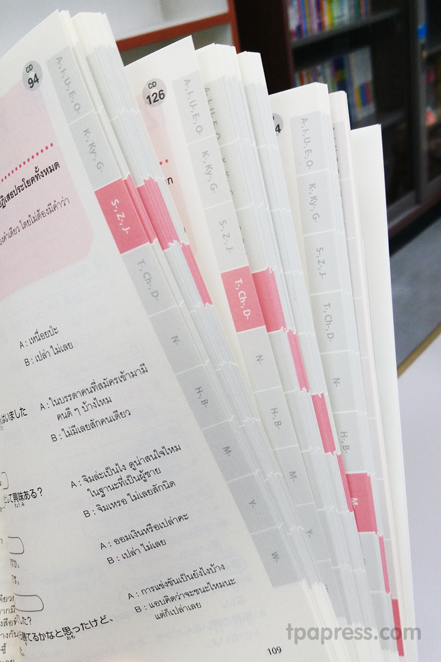 CD
94
ปฏิเสธประโยคทั้งหมด
A : เหนื่อยปะ
B : เปล่า ไม่เลย
A : ในบรรดาคนที่สมัครเข้ามามี
คนดี ๆ บ้างไหม
B : ไม่มีเลยสักคนเดียว
A : จิมล่ะเป็นไง ดูน่าสนใจไหม
ในฐานะที่เป็นผู้ชาย
B : จิมเหรอ ไม่เลยสักนิด
て興味ある?
A : ออมเงินหรือเปล่าคะ
B : เปล่า ไม่เลย
A : การแข่งขันเป็นยังไงบ้าง
B : แอบคิดว่าจะชนะไหมนะ
แต่ก็เปล่าเลย
てるかなと思ったけど、
109
A-, I-, U-, E-, O-
K-, Ky-, G-
S-, Z-, J-
T-, Ch-, D-
N-
H-, B-
M-
Y-
W-
CD
126
A-, I-, U-, E-, O-
K-, Ky-, G-
S-, Z-, J-
T-, Ch-, D-
N-
H-, B-
M-
Y-
4
A-, I-, U-, E-, O-
K-, Ky-, G-
S-, Z-, J-
T-, Ch-, D-
N-
H-, B-
M-
tpapress.com